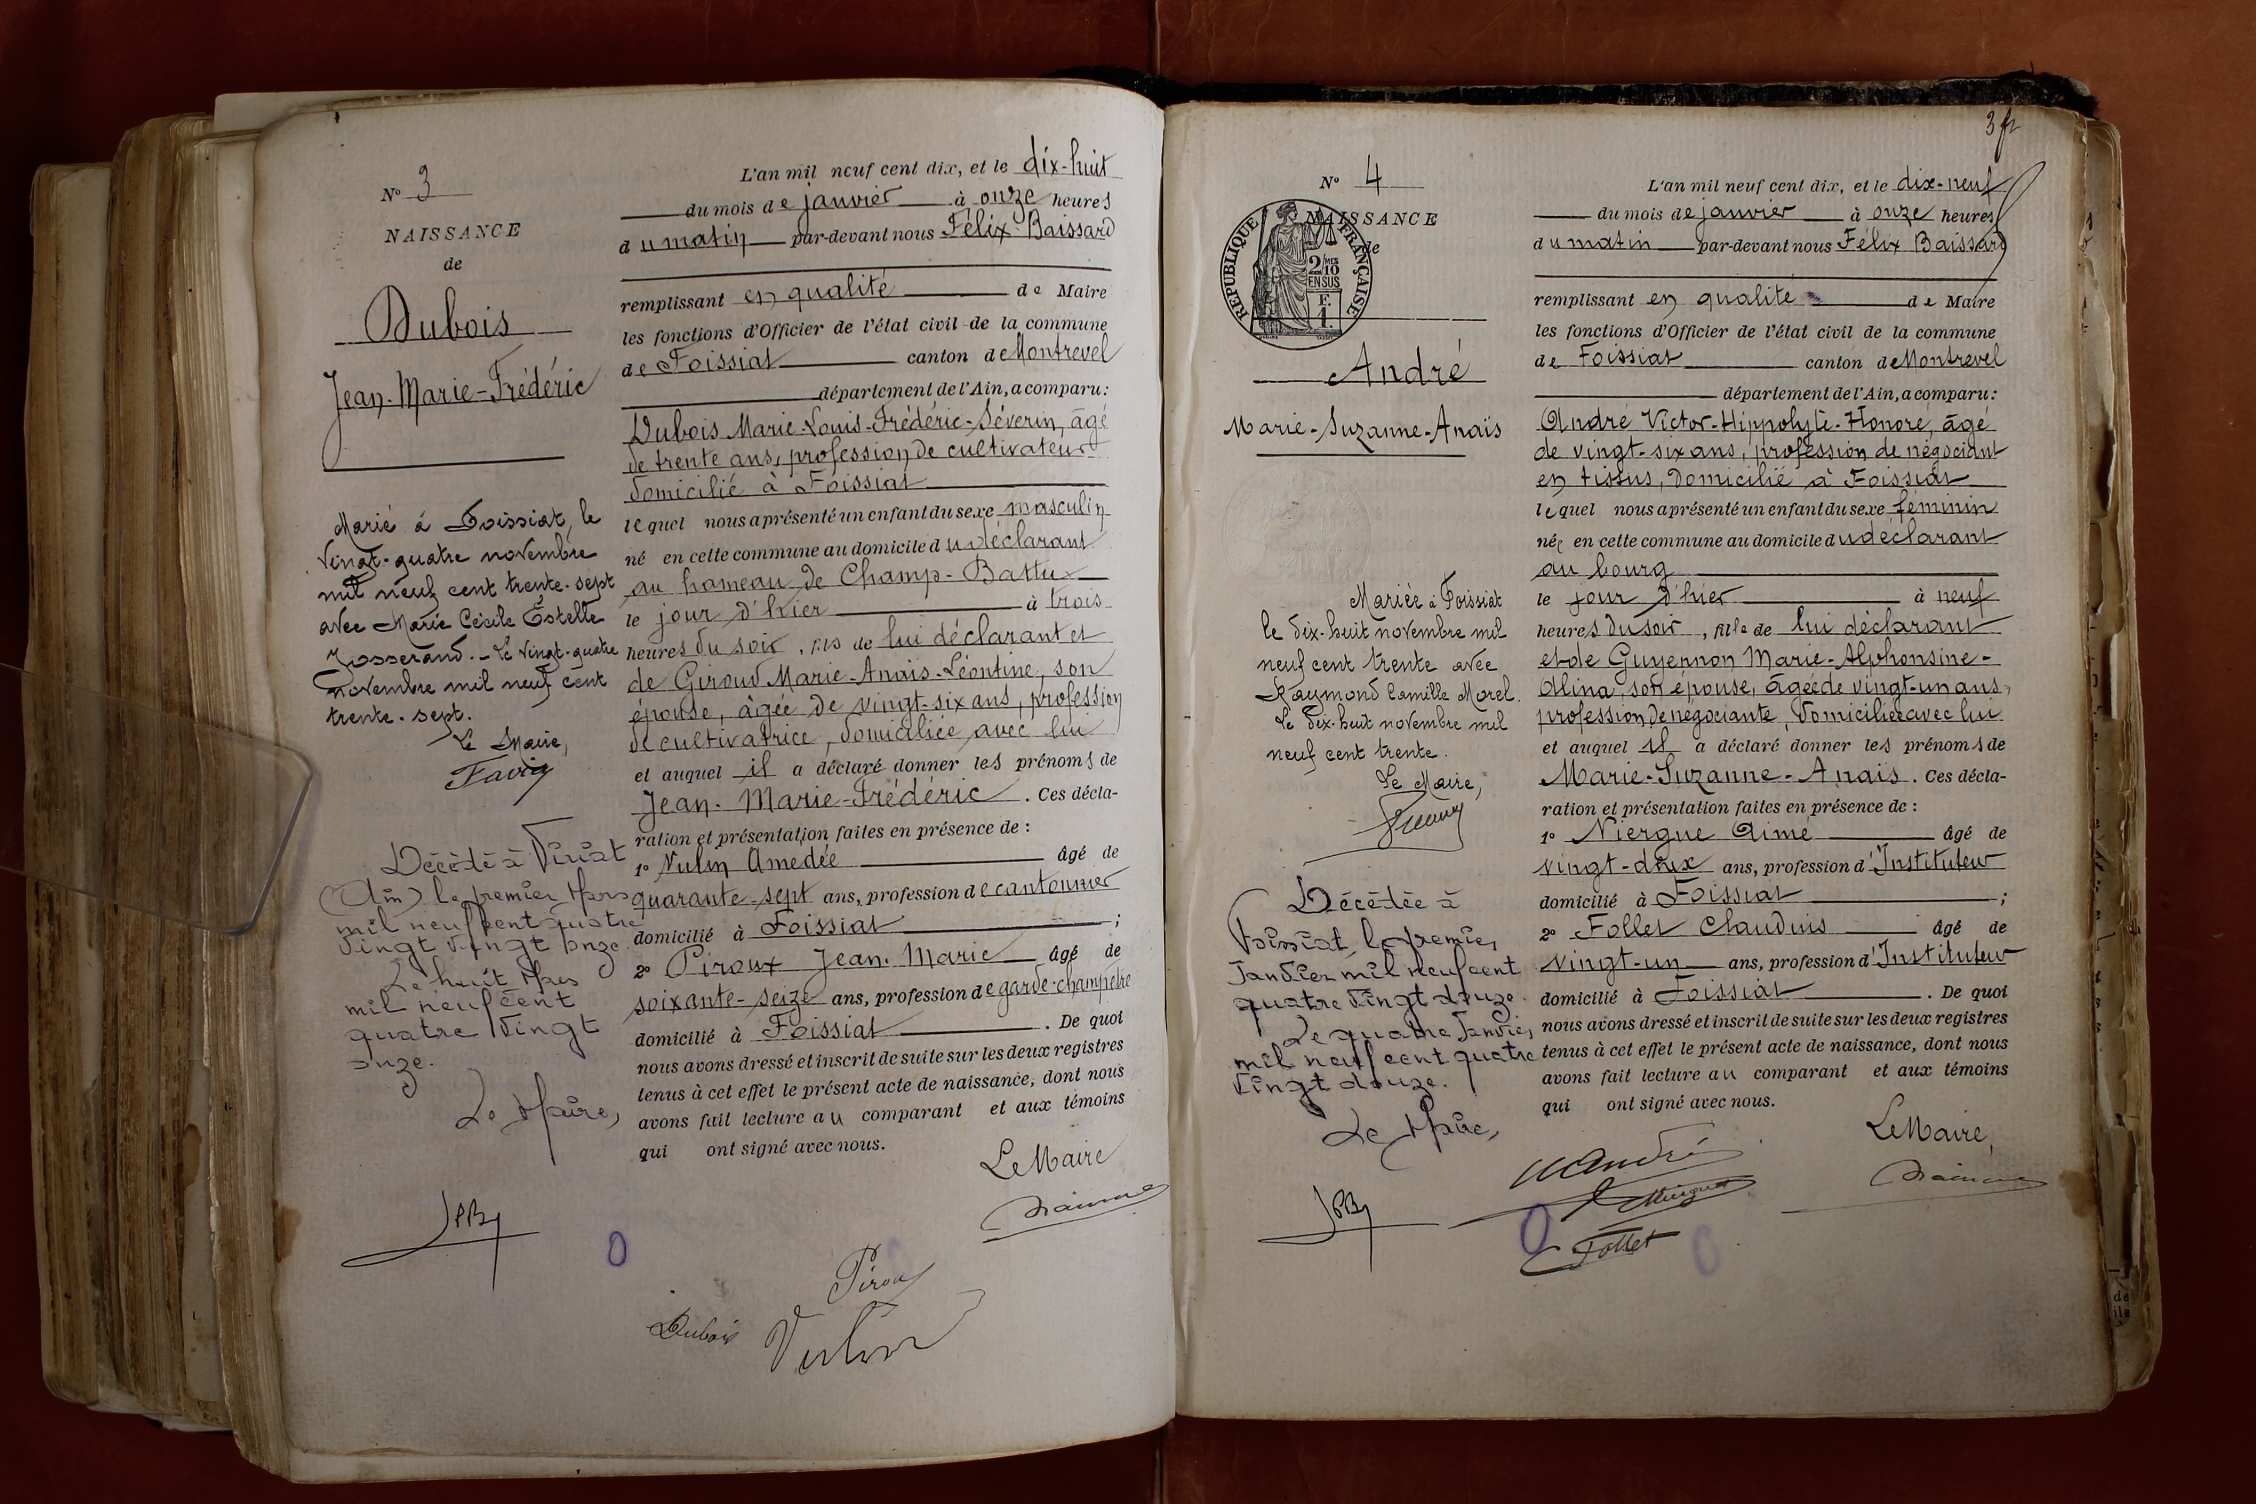 N° 3
NAISSANCE
de
Dubois
Jean-Marie-Frédéric
Marié à Foissiat, le
vingt-quatre novembre
mil neuf cent trente-sept
avec Marie Cécile Estelle
Josserand. - Le vingt-quatre
novembre mil neuf cent
trente-sept.
Le Maire,
Décédé à Viriat
(Ain) le premier Mars
mil neuf cent quatre
vingt vingt onze.
Le huit Mars
mil neuf cent
quatre vingt
onze.
Le Maire,
L'an mil neuf cent dix, et le dix-huit
du mois de janvier à onze heures
du matin par-devant nous Félix Baissard
remplissant en qualité de Maire
les fonctions d'Officier de l'état civil de la commune
de Foissiat canton de Montrevel
département de l'Ain, a comparu:
Dubois Marie-Louis-Frédéric-Séverin, âgé
de trente ans, profession de cultivateur
domicilié à Foissiat
lequel nous a présenté un enfant du sexe masculin
né en cette commune au domicile du déclarant
au hameau de Champ-Battu
le jour d'hier à trois
heures du soir, fils de lui déclarant et
de Giroud Marie-Anaïs-Léontine, son
épouse, âgée de vingt-six ans, profession
de cultivatrice, domiciliée avec lui
et auquel il a déclaré donner les prénoms de
Jean-Marie-Frédéric. Ces décla-
ration et présentation faites en présence de :
1° Vulin Amédée âgé de
quarante-sept ans, profession de cantonnier
domicilié à Foissiat ;
2° Piroux Jean-Marie âgé de
soixante-seize ans, profession de garde-champêtre
domicilié à Foissiat. De quoi
nous avons dressé et inscrit de suite sur les deux registres
tenus à cet effet le présent acte de naissance, dont nous
avons fait lecture au comparant et aux témoins
qui ont signé avec nous.
Le Maire
Piroux
Dubois
Vulin
3 fr
N° 4
NAISSANCE
de
REPUBLIQUE FRANÇAISE
2/10
EN SUS
F.
1.
André
Marie-Suzanne-Anaïs
Mariée à Foissiat
le dix-huit novembre mil
neuf cent trente avec
Raymond Camille Morel.
Le dix-huit novembre mil
neuf cent trente.
Le Maire,
Décédée à
Foissiat, le premier
Janvier mil neuf cent
quatre vingt douze.
Le quatre Janvier
mil neuf cent quatre
vingt douze.
Le Maire,
L'an mil neuf cent dix, et le dix-neuf
du mois de janvier à onze heures
du matin par-devant nous Félix Baissard
remplissant en qualité de Maire
les fonctions d'Officier de l'état civil de la commune
de Foissiat canton de Montrevel
département de l'Ain, a comparu:
André Victor-Hippolyte-Honoré, âgé
de vingt-six ans, profession de négociant
en tissus, domicilié à Foissiat
lequel nous a présenté un enfant du sexe féminin
née en cette commune au domicile du déclarant
au bourg
le jour d'hier à neuf
heures du soir, fille de lui déclarant
et de Guyennon Marie-Alphonsine-
Alina, son épouse, âgée de vingt-un ans,
profession de négociante, domiciliée avec lui
et auquel il a déclaré donner les prénoms de
Marie-Suzanne-Anaïs. Ces décla-
ration et présentation faites en présence de :
1° Niergue Aimé âgé de
vingt-deux ans, profession d'Instituteur
domicilié à Foissiat ;
2° Follet Claudius âgé de
vingt-un ans, profession d'Instituteur
domicilié à Foissiat. De quoi
nous avons dressé et inscrit de suite sur les deux registres
tenus à cet effet le présent acte de naissance, dont nous
avons fait lecture au comparant et aux témoins
qui ont signé avec nous.
Le Maire,
André
Follet